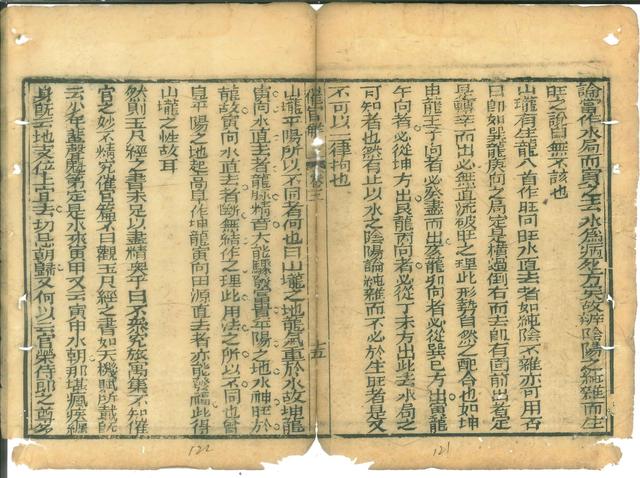 論當作水局而寅又生云水爲病死方矣故辨陰陽之純雜而生
旺之說自無不該也
山壠有生龍八首作旺向旺水直去者如純陰不雜亦可用否
曰卽如巽龍庚向之局定是橫過倒右而去卽有面前出者定
是轉辛而出必無直流破旺之理此形勢自然之配合也如坤
申龍壬子向者必癸盡而出亥龍卯向者必從巽巳方出寅龍
午向者必從坤方出艮龍丙向者必從丁未方出此去水局之
可知者也然有止以水之陰陽論純雜而不必於生旺者是又
不可以一律拘也
催官解 卷三 十五
山壠平陽所以不同者何也曰山壠之地龍氣重於水故坤龍
寅向水直去者龍脉精音大能驟發富書平陽之地水神旺於
龍故寅向水直去者斷無結作之理此用法之所以不同也曾
皇平陽之地起高阜作坤龍寅向田源直去者亦能發福此得
山壠之性故耳
然則玉尺經之書未足以盡精奧乎曰不然究旅寓集不知催
官之妙不精究催官篇不曰觀玉尺經之書如天機賦所載旣
云少年蓋聲魁第定是水來寅甲又云寅甲水朝那堪瘋疾纏
身旣云地支位上宜去切忌朝歸又何以云官榮侍郎之尊多
122
121